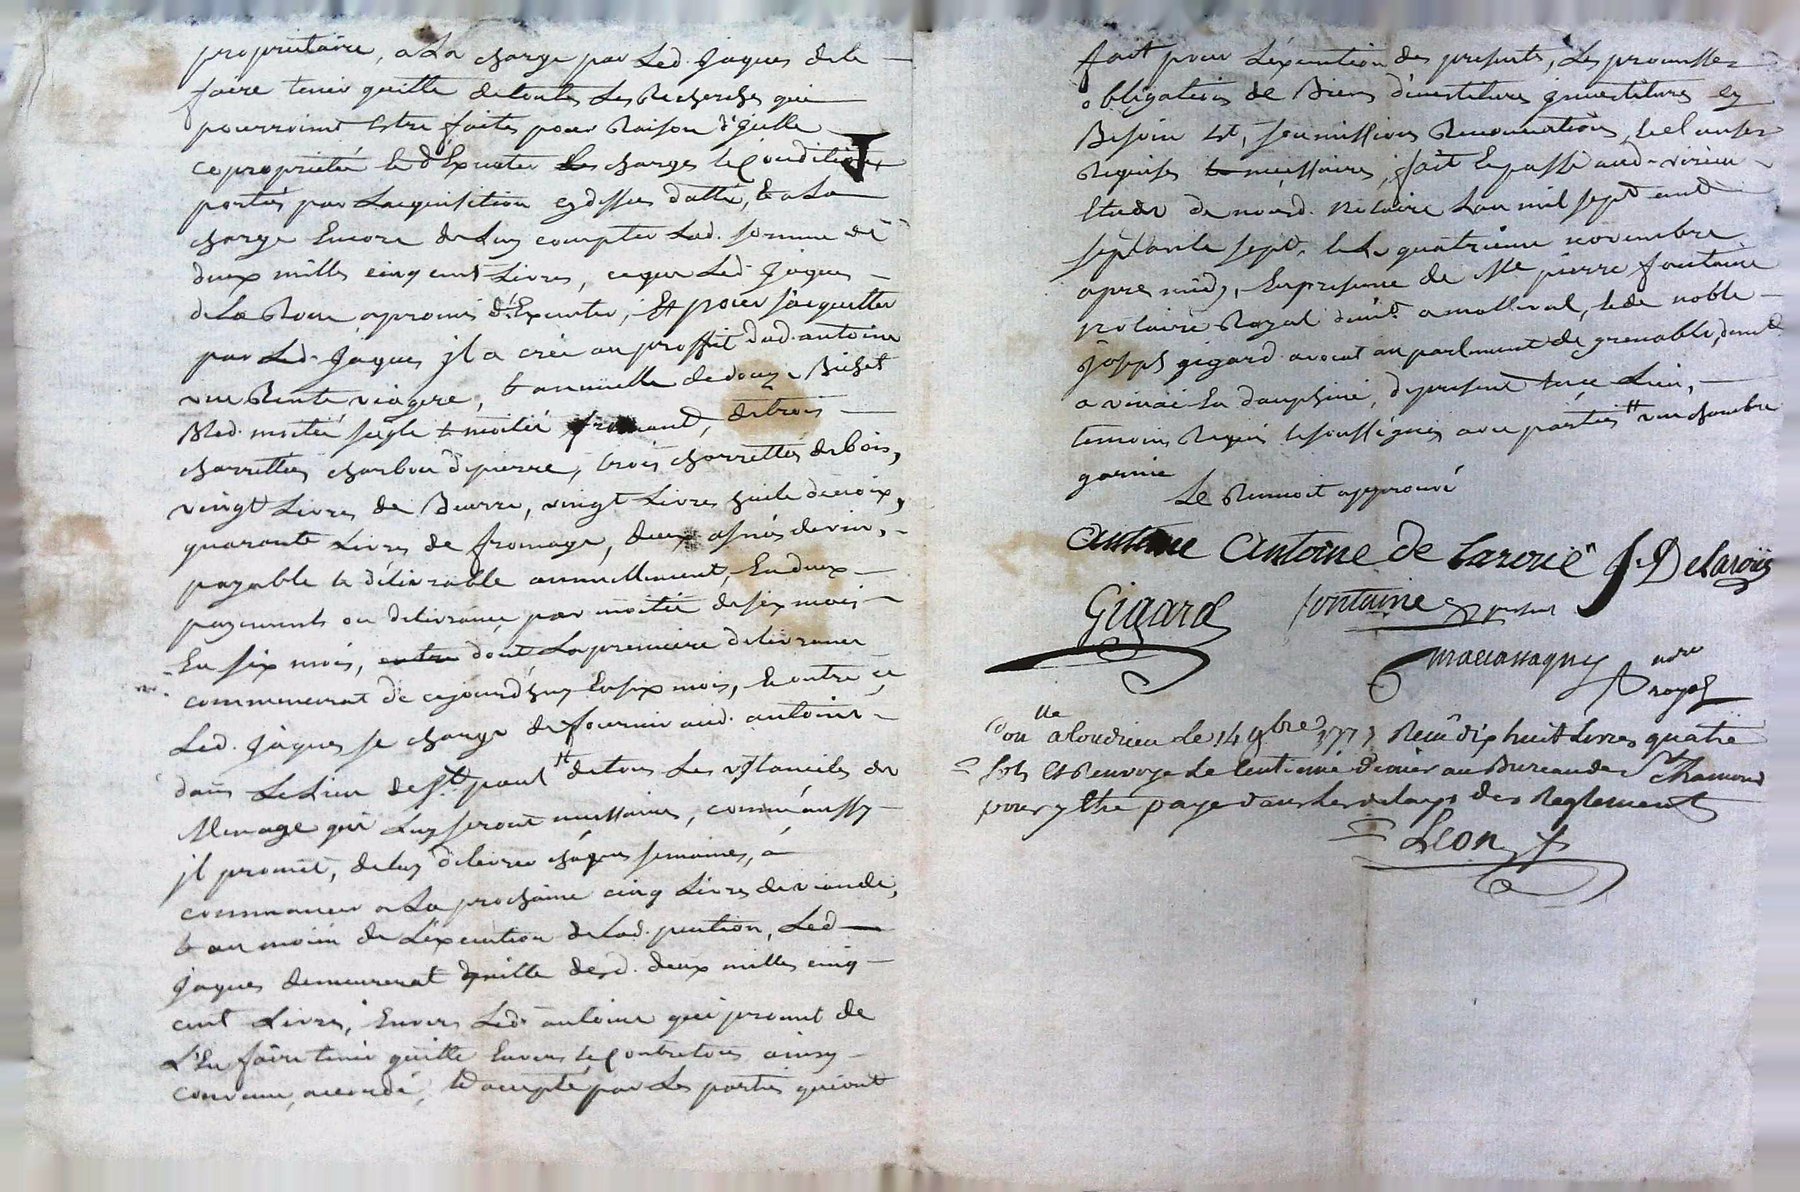 proprietaire, a La charge par Led. Jaques de le
faire tenir quitte de toutes Les Recherches qui
pourroient Estre faites pour Raison d'jcelle
copropriétée & d'Executer Les charges & Conditions
portés par L'acquisition cy dessus datté, & a La
charge Encore de Luy compter Lad. somme de
deux milles cinq cent Livres, ce que Led. Jaques
de La Roue a promis d'Executer, Et pour s'acquitter
par Led. Jaques jl a crée au proffit dud. antoine
une Rente viagere, & annuelle de douze Bichet
Bled moitié seigle & moitié fromand, de trois
charrettes charbon de pierre, trois charrettes de bois,
vingt Livres de Beurre, vingt Livres huile de noix,
quarante Livres de fromage, deux asnés de vin,
payable & délivrable annuellement, En deux
payements ou délivrance par moitié de six mois
En six mois, dont La premiere delivrance
commencerat de ce jourd'huy En six mois, & outre ce
Led. Jaques se charge de fournir aud. antoine
dans Le Lieu de St. paul # de tous Les ustanciles de
Menage qui Luy seront necessaires, comme aussy
jl promet, de Luy délivrer chaques semaines, à
commancer a La prochaine cinq Livres de viande,
& au moien de L'execution de Lad. pention, Led
Jaques demeurerat quitte desd. deux milles cinq
cent Livres, Envers Led. antoine qui promet de
L'En faire tenir quitte Envers & Contre tous ainsy
convenu, accordé, & accepté par Les parties qui ont
fait pour L'éxécution des presents, Les promesses
obligations de Biens d'investitures jnvestitures sy
Besoin Est, soumissions Renonciations, & clauses
Requises & nécessaires, fait & passé aud. virieu
Etude de nousd. Notaire L'an mil sept cent
septante sept, & Le quatrieme novembre
apres midy, En presence de Me pierre fontaine
notaire Royal de a malleval, & de noble
Joseph gigard avocat au parlement de grenoble, demt
a vinai En dauphiné, de present En ce Lieu,
temoins Requis & soussignés avec parties # une chambre
garnie
Le Renvoit approuvé
Antoine Antoine De Laroue J. Delaroüe
Gigard fontaine present
Maccassagny nore
royal
Conlle a Condrieu le 14 9bre 1777 Reçu dix huit Livres quatre
sols Et Renvoye Le Centieme denier au Bureau de St Chamond
pour y Etre payé dans Les delays des Reglements
Leon